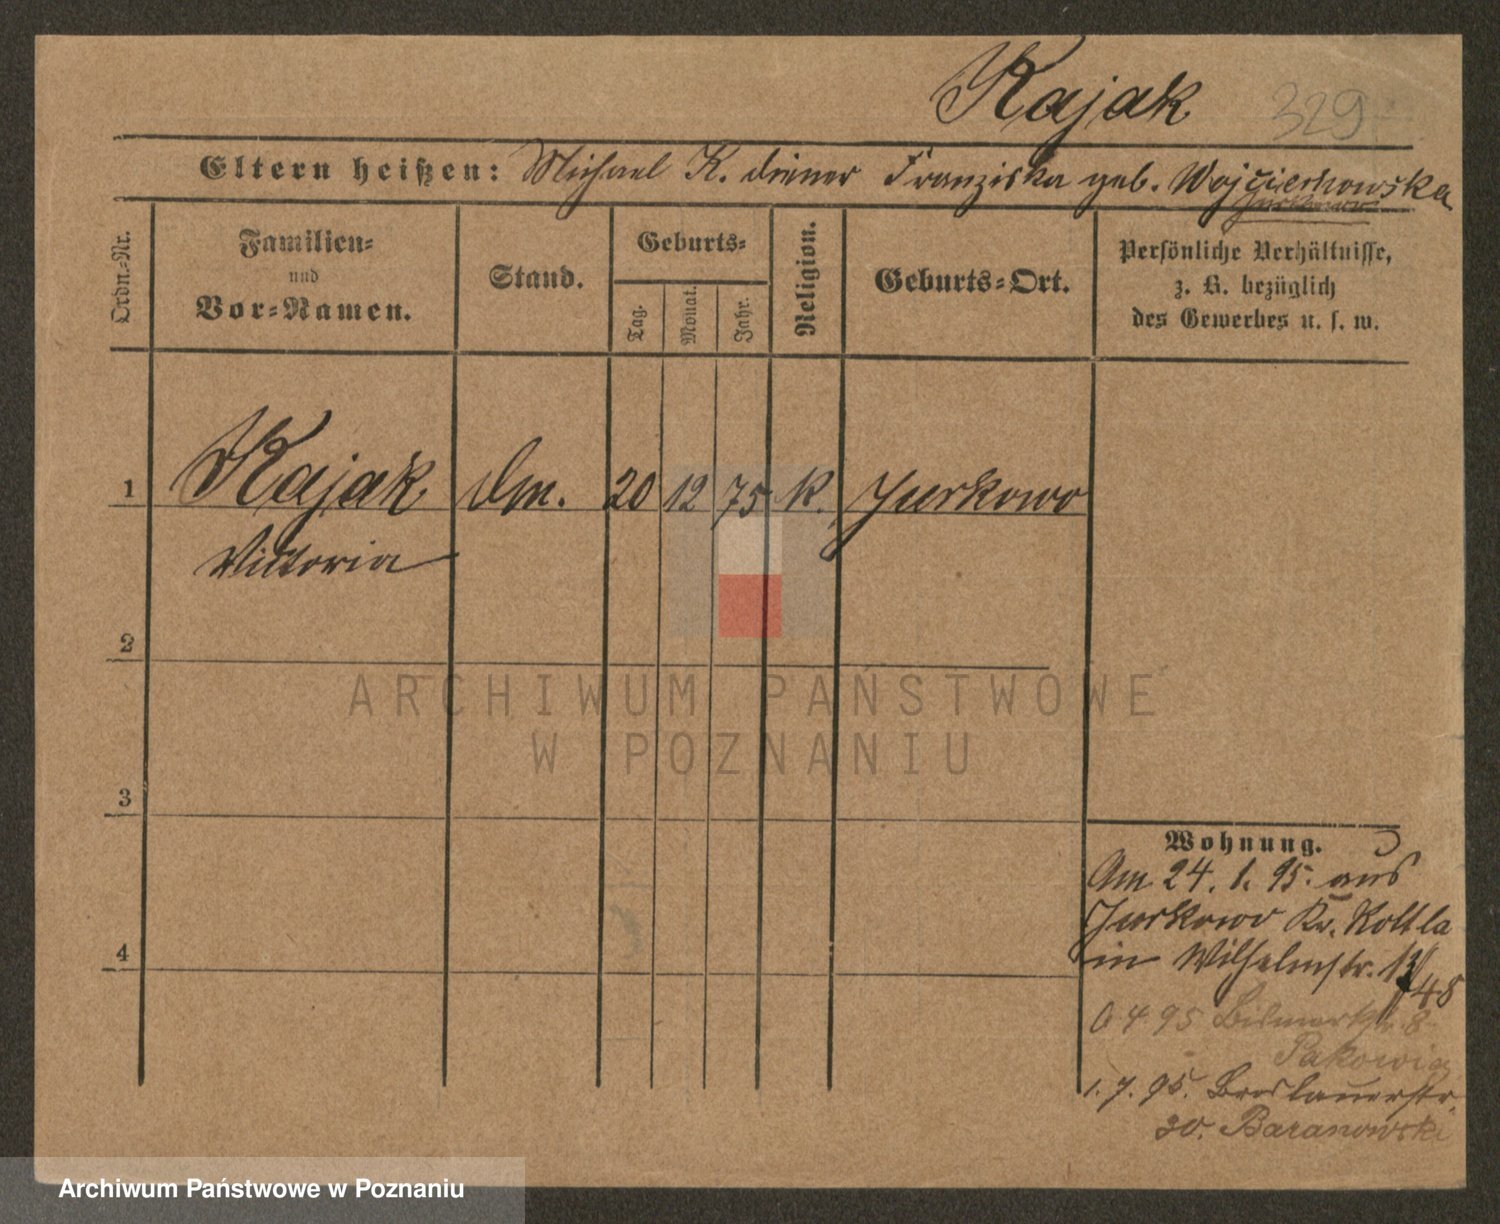 Kajak 329
Eltern heißen: Michael K. diener Franziska geb. Wojciechowska
Jurkowo
Ordn.-Nr.
Familien-
und
Vor-Namen.
Stand.
Geburts-
Tag.
Monat.
Jahr.
Religion.
Geburts-Ort.
Persönliche Verhältnisse,
z. B. bezüglich
des Gewerbes u. s. w.
1 Kajak dm. 20 12 75 k. Jurkowo
Victoria
2
3
4
Wohnung.
Am 24. 1. 95. aus
Jurkowo Kr.
in Wilhelmstr. 13
48
6 4 95 Bismarkstr. 8
1. 7. 95. Breslauerstr.
30. Baranowski
ARCHIWUM PAŃSTWOWE
W POZNANIU
Archiwum Państwowe w Poznaniu